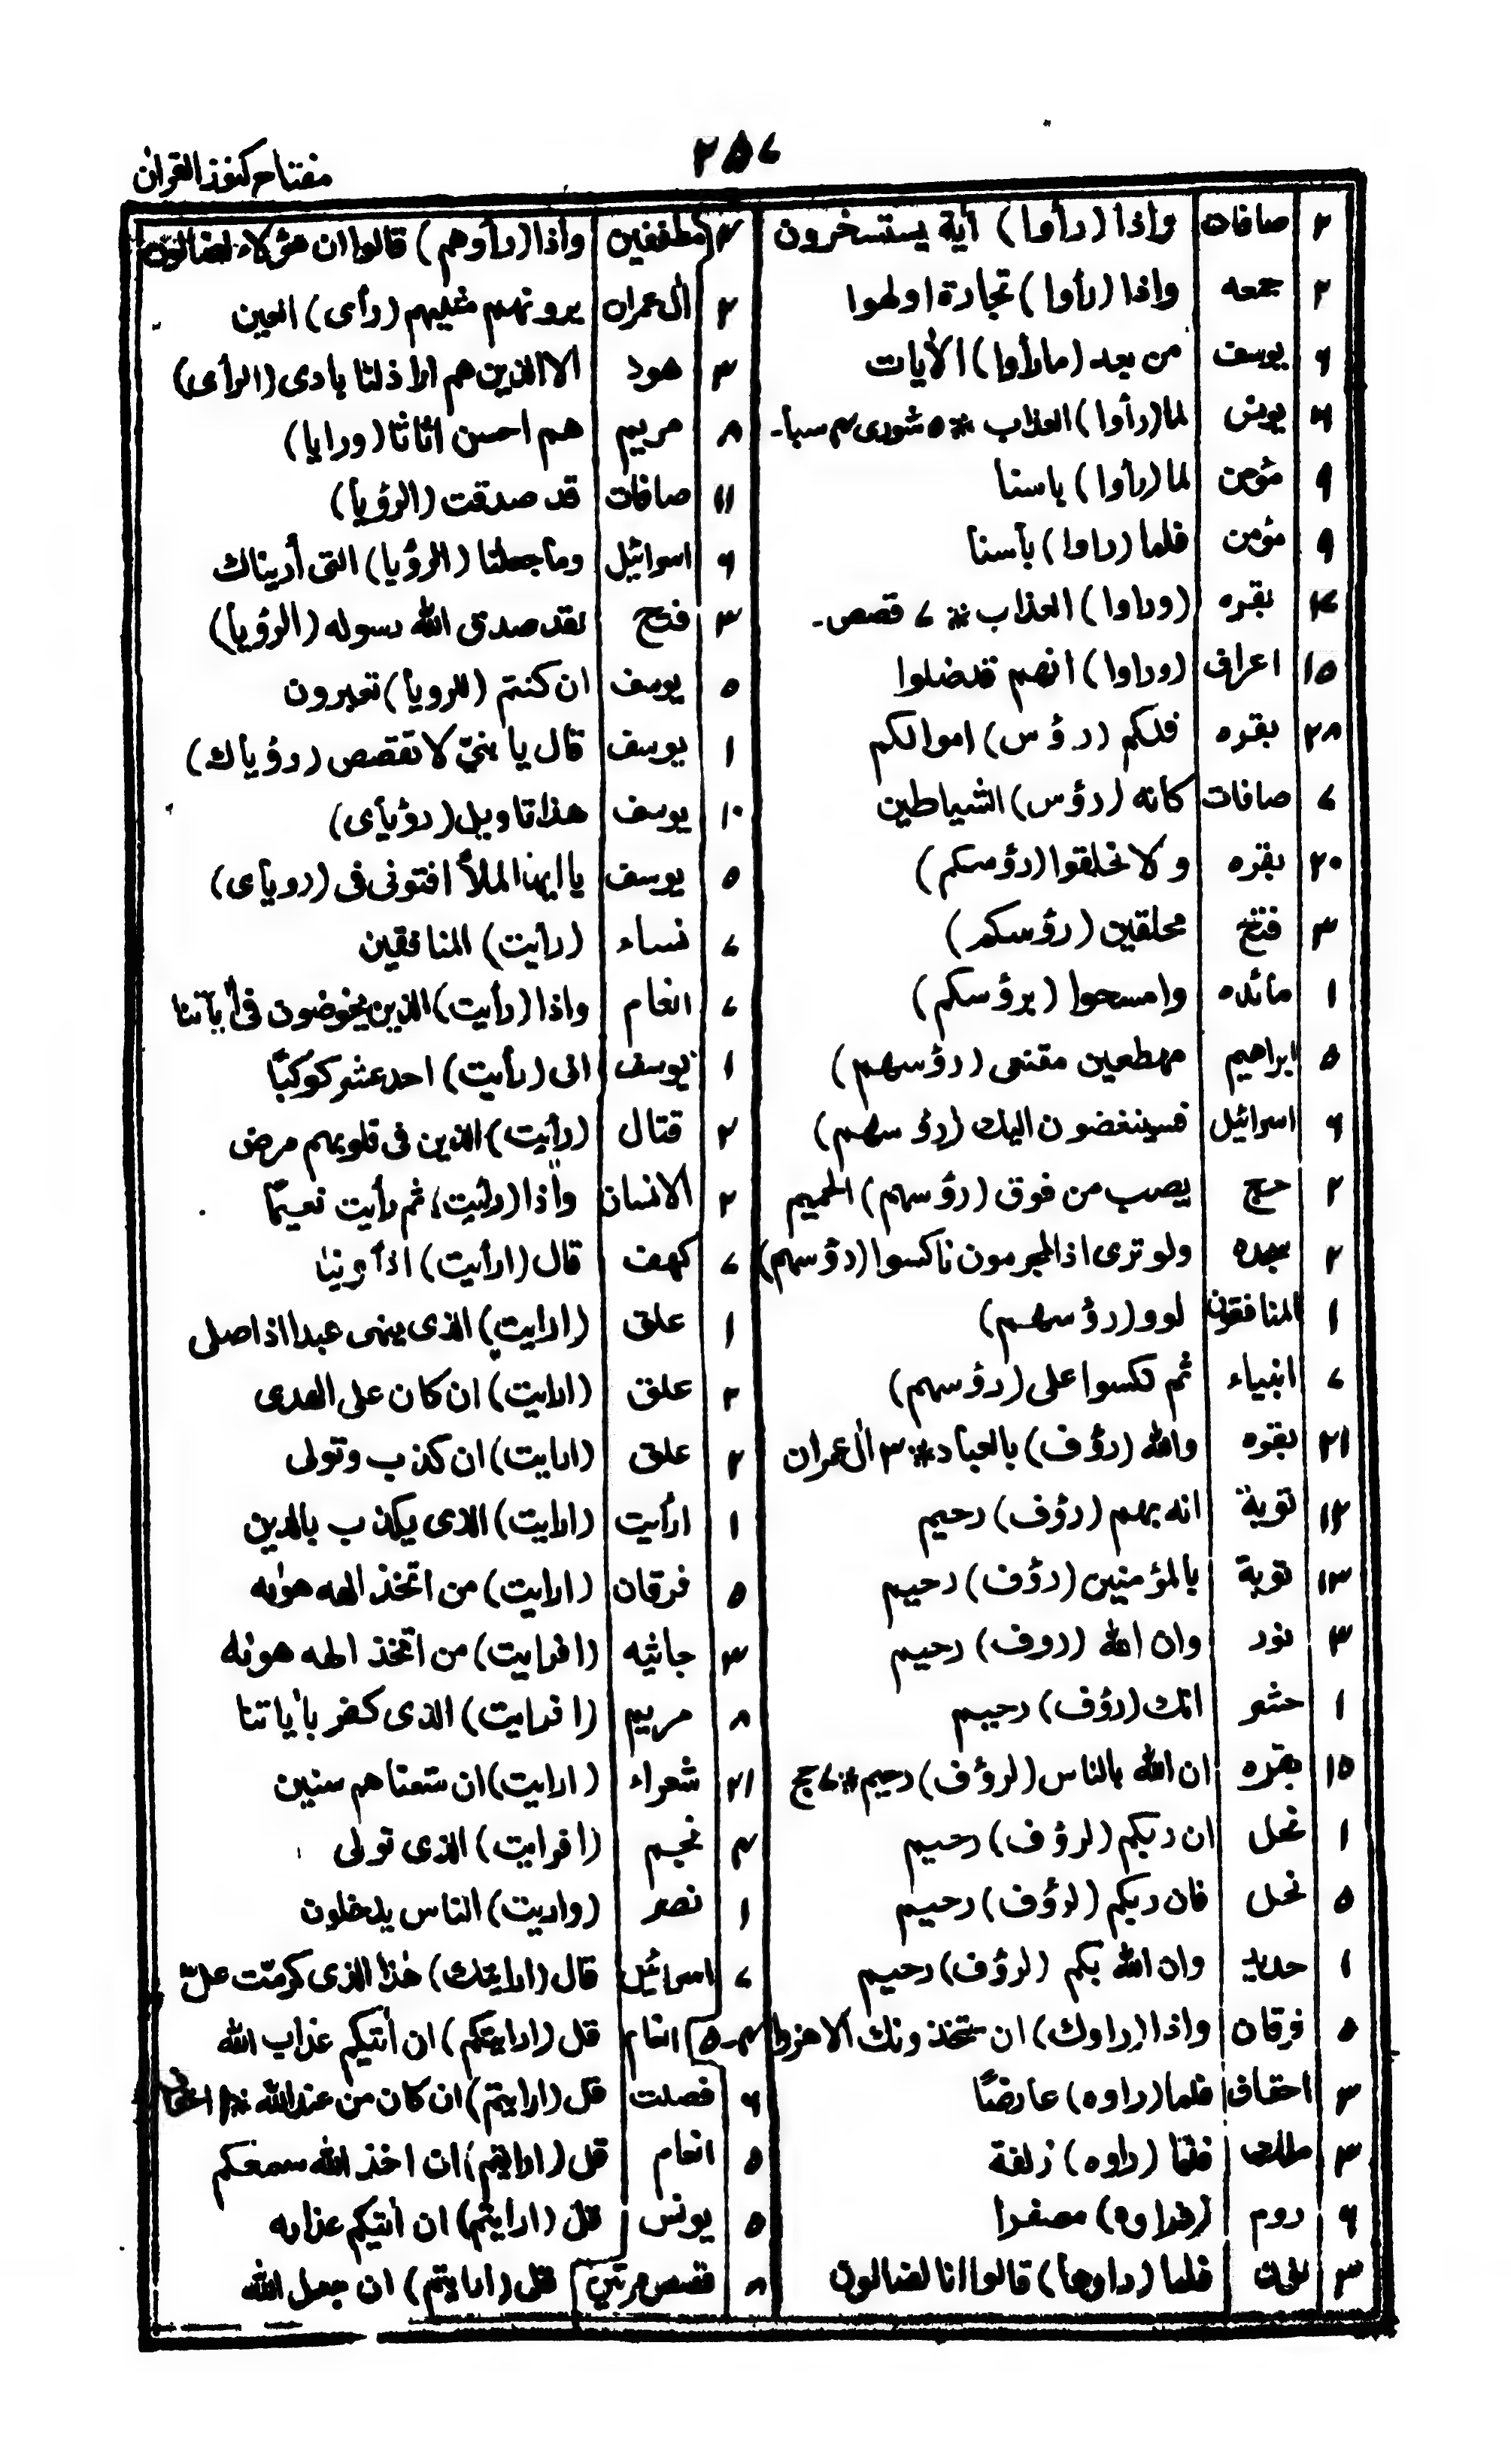 مفتاح كنوز القرأن
٢٥٧
٢ صافات واذا (رأوا) أية يستسخرون
٢ جمعه واذا (رأوا) تجارة اولهوا
٦ يوسف من بعد (مارأوا) الأيات
٦ يونس لما (رأوا) العذاب * ٥ شورى ٣ سبأ-
٩ مؤمن لما (رأوا) باسنا
٩ مؤمن فلما (راوا) بأسنا
بقره (وراوا) العذاب * ٧ قصص-
١٥ اعراف (وراوا) انهم قد ضلوا
٢٨ بقره فلكم (رؤس) اموالكم
٧ صافات كانه (رؤس) الشياطين
٢٠ بقره ولا تحلقوا (رؤسكم)
٣ فتح محلقين (رؤسكم)
١ مائده وامسحوا (برؤسكم)
٥ ابراهيم مهطعين مقنعى (رؤسهم)
٦ اسرائيل فسينغضون اليك (رؤسهم)
٢ حج يصب من فوق (رؤسهم) الحميم
٢ سجده ولو ترى اذ المجرمون ناكسوا (رؤسهم)
١ المنافقون لوو (رؤسهم)
٧ انبياء ثم نكسوا على (رؤسهم)
٢١ بقره والله (رؤف) بالعباد * ٣ أل عمران
١٢ توبة انه بهم (رؤف) رحيم
١٣ توبة بالمؤمنين (رؤف) رحيم
٣ نور وان الله (روف) رحيم
١ حشر انك (رؤف) رحيم
١٥ بقره ان الله بالناس (لرؤف) رحيم * ٧ حج
١ نحل ان ربكم (لرؤف) رحيم
٥ نحل فان ربكم (لرؤف) رحيم
١ حديد وان الله بكم (لرؤف) رحيم
٥ فرقان واذا (راوك) ان يتخذونك الا هزوا
٣ احقاف فلما (راوه) عارضًا
٣ ملك فلما (راوه) زلفة
٦ روم (فراوه) مصفرا
٣ فلما (راوها) قالوا انا لضالون
مطففين واذا (رأوهم) قالوا ان هؤلاء لضالون
٢ أل عمران يرونهم مثليهم (رأى) العين
٣ هود الا الذين هم اراذلنا بادى (الرأى)
٨ مريم هم احسن اثاثا (ورايا)
١١ صافات قد صدقت (الرؤيأ)
٦ اسرائيل وما جعلنا (الرؤيا) التى أريناك
٣ فتح لقد صدق الله رسوله (الرؤيأ)
٥ يوسف ان كنتم (للرويأ) تعبرون
١ يوسف قال يا بنيّ لا تقصص (رؤياك)
١٠ يوسف هذا تاويل (رؤيأى)
٥ يوسف يا ايها الملأ افتونى فى (رويأى)
٧ نساء (رأيت) المنافقين
٧ انعام واذا (رأيت) الذين يخوضون فى أيآتنا
١ يوسف انى (رأيت) احد عشر كوكبًا
٢ قتال (رأيت) الذين فى قلوبهم مرض
٢ الانسان واذا (رأيت) ثم رأيت نعيمًا
٧ كهف قال (ارأيت) اذ أوينا
١ علق (ارايت) الذى ينهى عبدا اذا صلى
٢ علق (ارايت) ان كان على الهدى
٢ علق (ارايت) ان كذب وتولى
١ ارأيت (ارايت) الذى يكذب بالدين
٥ فرقان (ارايت) من اتخذ الهه هوٰيه
٣ جاثيه (افرايت) من اتخذ الهه هوٰيه
٨ مريم (افرايت) الذى كفر بأياتنا
٢١ شعراء (ارايت) ان متعناهم سنين
نجم (افرايت) الذى تولى
١ نصر (ورايت) الناس يدخلون
٧ اسرائيل قال (ارايتك) هٰذا الذى كرمّت علىّ
٤-٥ انعام قل (ارايتكم) ان أتٰيكم عذاب الله
٦ فصلت قل (ارايتم) ان كان من عند الله
٥ انعام قل (ارايتم) ان اخذ الله سمعكم
٥ يونس قل (ارايتم) ان أتٰيكم عذابه
٨ قصص مرتين قل (ارايتم) ان جعل الله